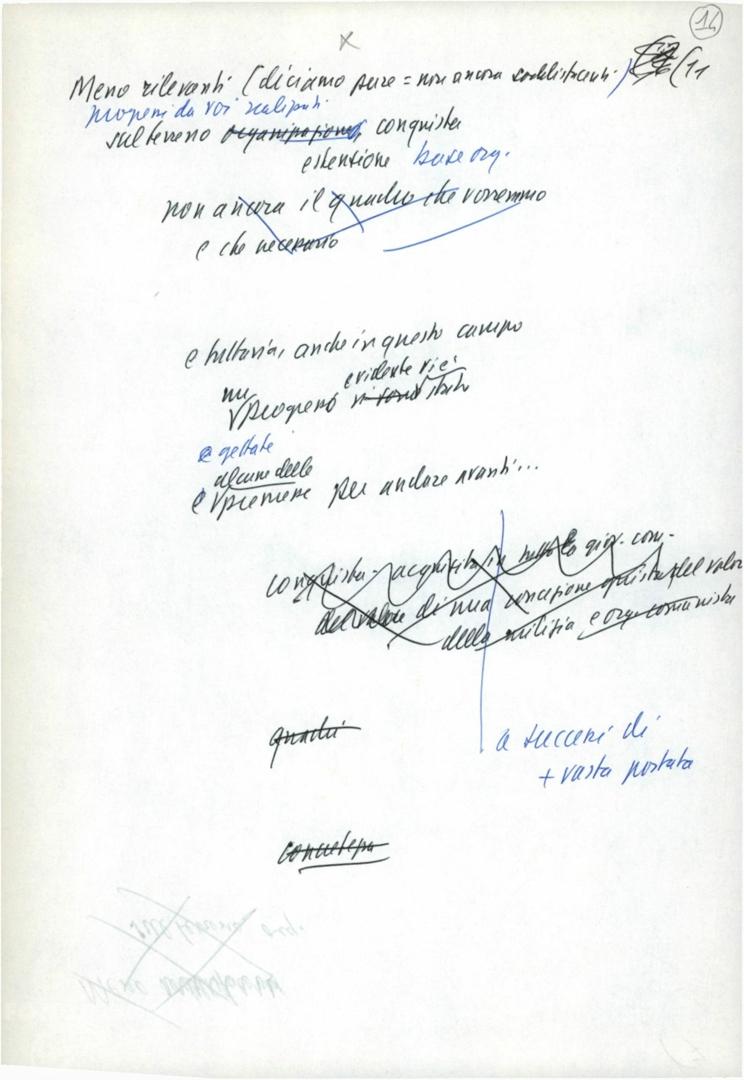 14
x
Meno rilevanti (diciamo pure = non ancora soddisfacenti) (11
progressi da voi realizzati
sul terreno organizzazione conquista
estentione base org.
non ancora il quadro che vorremmo
e che necessario
e tuttavia, anche in questo campo
evidente vi è
un
progresso stato
e gettate
alcune delle
e premesse per andare avanti...
conquista - acquisita in tutta la giov. com.
del valore di una concezione giusta del valore
della milizia e org. comunista
quadri
a successi di
+ vasta portata
concretezza